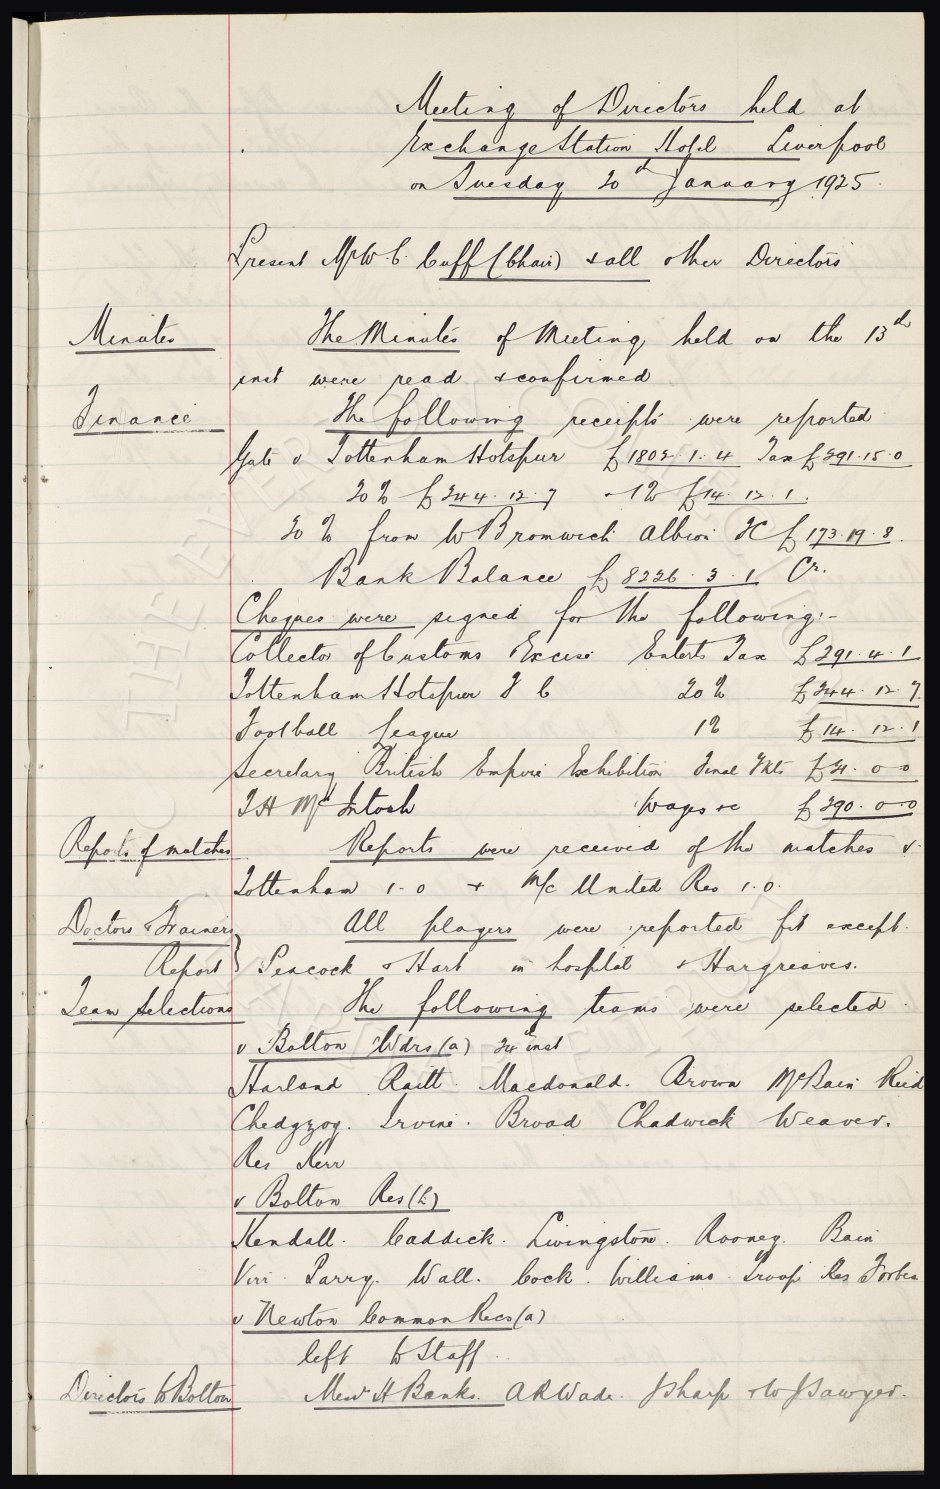 Meeting of Directors held at
Exchange Station Hotel Liverpool
on Tuesday 20th January 1925
Present Mr W C Cuff (Chair) & all other Directors
Minutes The Minutes of Meeting held on the 13th
inst were read & confirmed
Finance The following receipts were reported
Gate v Tottenham Hotspur £1802.1.4 Tax £291.15.0
20% £244.12.7 - 1% £14.12.1.
20% from W Bromwich Albion FC £173.19.8.
Bank Balance £8226.3.1 Cr.
Cheques were signed for the following:-
Collector of Customs Excise Enterts Tax £291.4.1
Tottenham Hotspur F C 20% £244.12.7.
Football League 1% £14.12.1
Secretary British Empire Exhibition Final Tkts
T H McIntosh Wages &c £290.0.0
Reports of matches Reports were received of the matches v.
Tottenham 1-0 & M/c United Res 1.0.
Doctors & Trainers All players were reported fit except
Report Peacock & Hart in hospital & Hargreaves.
Team Selections The following teams were selected
v Bolton Wdrs (a) 24th inst
Harland Raitt. Macdonald. Brown McBain Reid
Chedgzoy. Irvine. Broad Chadwick Weaver.
Res Kerr
v Bolton Res (h)
Kendall. Caddick. Livingstone. Rooney. Bain
Virr. Parry. Wall. Cock. Williams. Troup Res Forbes
v Newton Common Recs (a)
left to Staff.
Directors to Bolton Messrs H Banks. A R Wade. J Sharp & W J Sawyer.